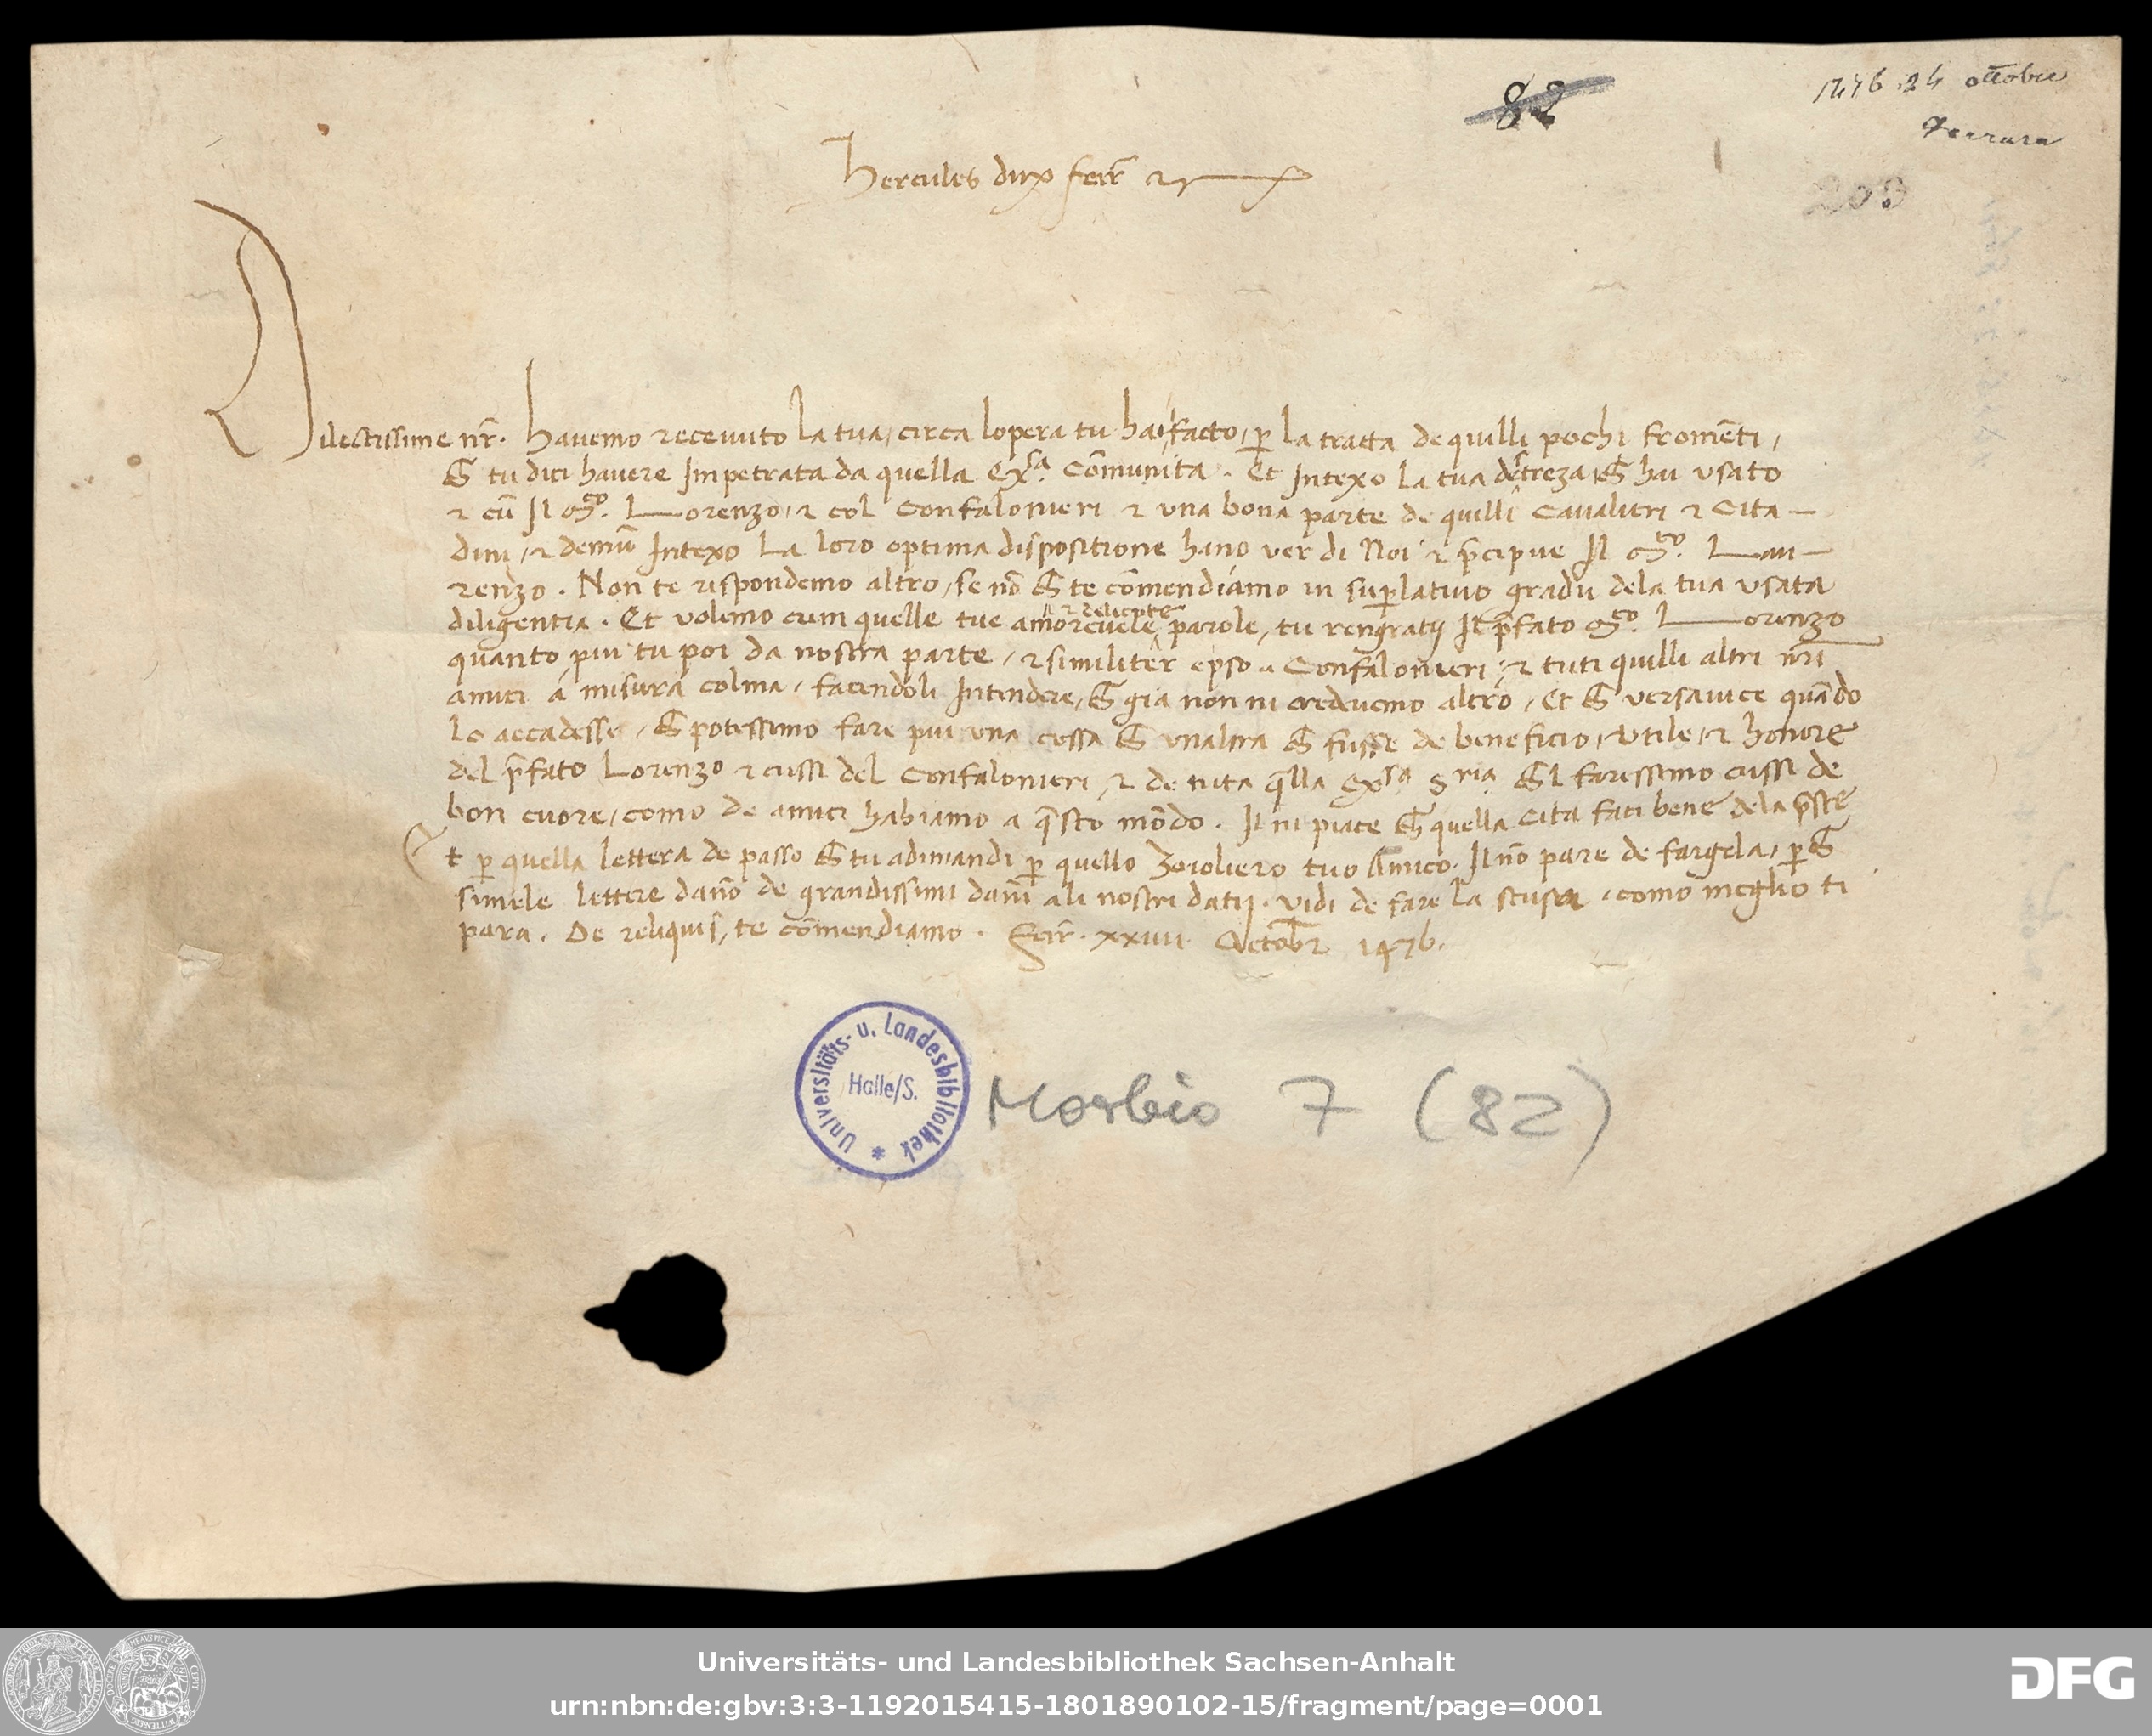 82
1476. 24 ottobre
Ferrara
203
Hercules dux ferr̃ ⁊c
Dilectissime nr̃. Havemo recevuto la tua, circa lopera tu hai facto, ꝑ la tratta de quilli pochi fromẽti,
ch tu dici havere Impetrata da quella Ex.sa Cõmunita. Et Intexo la tua destreza ch hai usato
⁊ cũ Il mco. Lorenzo, ⁊ col Confalonieri ⁊ una bona parte de quilli Cavalieri ⁊ Cita-
dini, ⁊ demũ Intexo La loro optima dispositione hano ver di Noi ⁊ p̃cipue Il mco. Lau-
renzo. Non te rispondemo altro, se nõ ch te cõmendiamo in suꝑlativo gradu dela tua usata
diligentia. Et volemo cum quelle tue amorevele ⁊ parole, tu rengratij Il p̃fato mco. Lorenzo
quanto piu tu poi da nostra parte, ⁊ similiter epso Confalonieri, ⁊ tuti quilli altri nr̃i
amici á misura colma, facendoli Intendere, ch gia non ni credevemo altro, Et ch versavice quãdo
lo accadesse, ch potessimo fare piu una cossa ch unaltra ch fusse de beneficio, utile, ⁊ honore
del p̃fato Lorenzo ⁊ cussi del Confalonieri, ⁊ de tuta q̃lla Ex.sa S.ria chl faressimo cussi de
bon cuore, como de amici habiamo a q̃sto mõdo. Il ni piace ch quella Cita faci bene dela p̃ste
Et ꝑ quella lettera de passo ch tu adimandi ꝑ quello Zoioliero tuo Amico. Il nõ pare de fargela, ꝑch
simele lettere dano de grandissimi dani ali nostri datij. vidi de fare la scusa, como meglio ti
para. De reliquis, te cõmendiamo. Ferr̃. xxiiii Octobr̃ 1476.
Universitäts- u. Landesbibliothek
Halle/S.
Morbio 7 (82)
Universitäts- und Landesbibliothek Sachsen-Anhalt
urn:nbn:de:gbv:3:3-1192015415-1801890102-15/fragment/page=0001
DFG